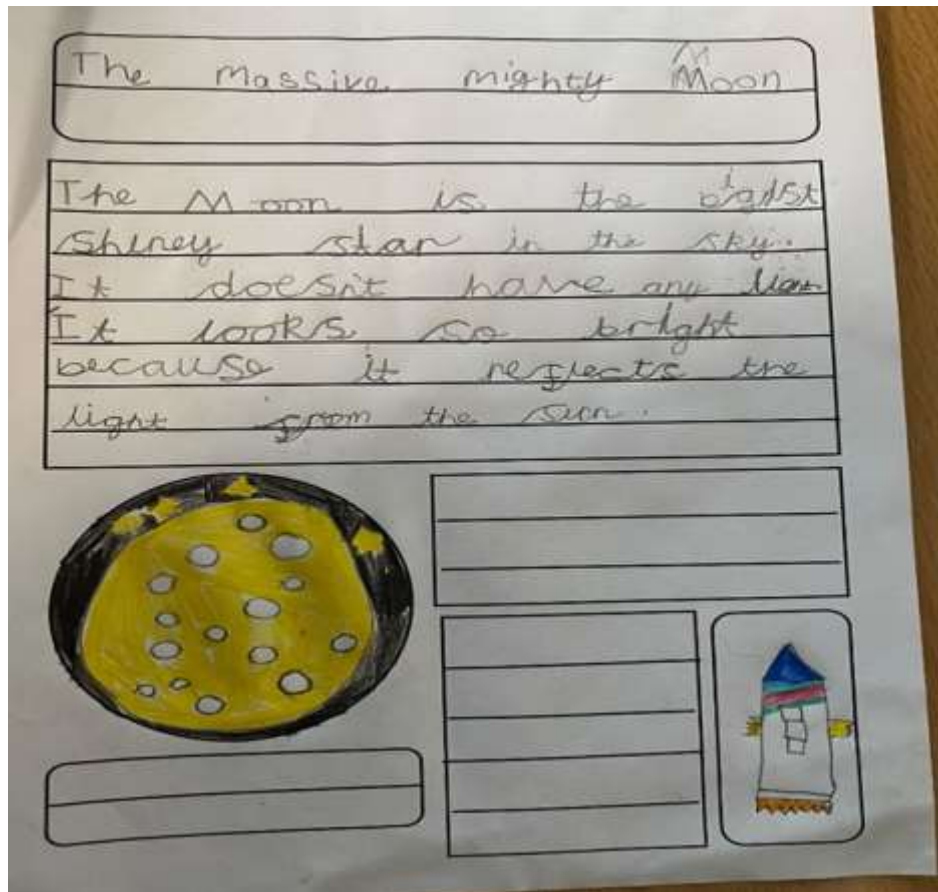 The massive mighty Moon
The Moon is the bigist
shiney star in the sky.
It doesn't have any light
It looks so bright
because it reflects the
light from the sun.